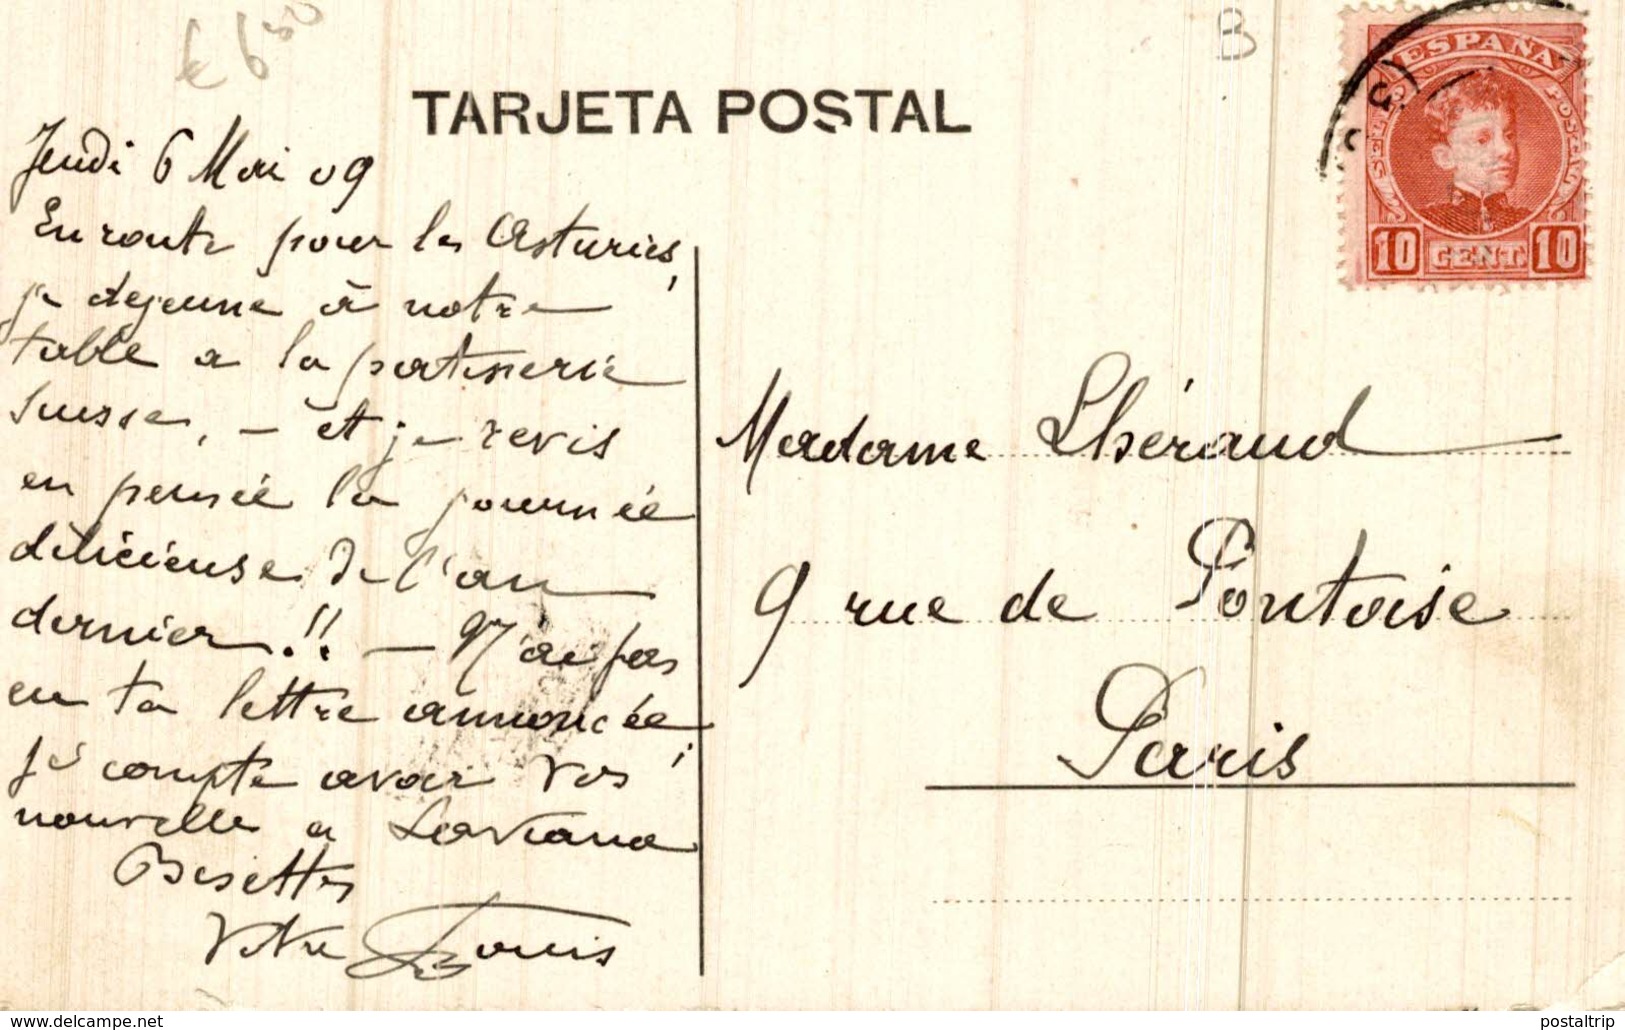 € 650
B
TARJETA POSTAL
ESPAÑA
10 CENT. 10
Jeudi 6 Mai 09
En route pour les Asturies,
je dejeune à notre
table a la patisserie
Suisse, – et je revis
en pensée la journée
délicieuse de l'an
dernier!! – N'ai pas
eu ta lettre annoncée;
je compte avoir vos
nouvelle a
Bisettes
Votre Louis
Madame Lhéraud
9 rue de Pontoise
Paris
www.delcampe.net
postaltrip